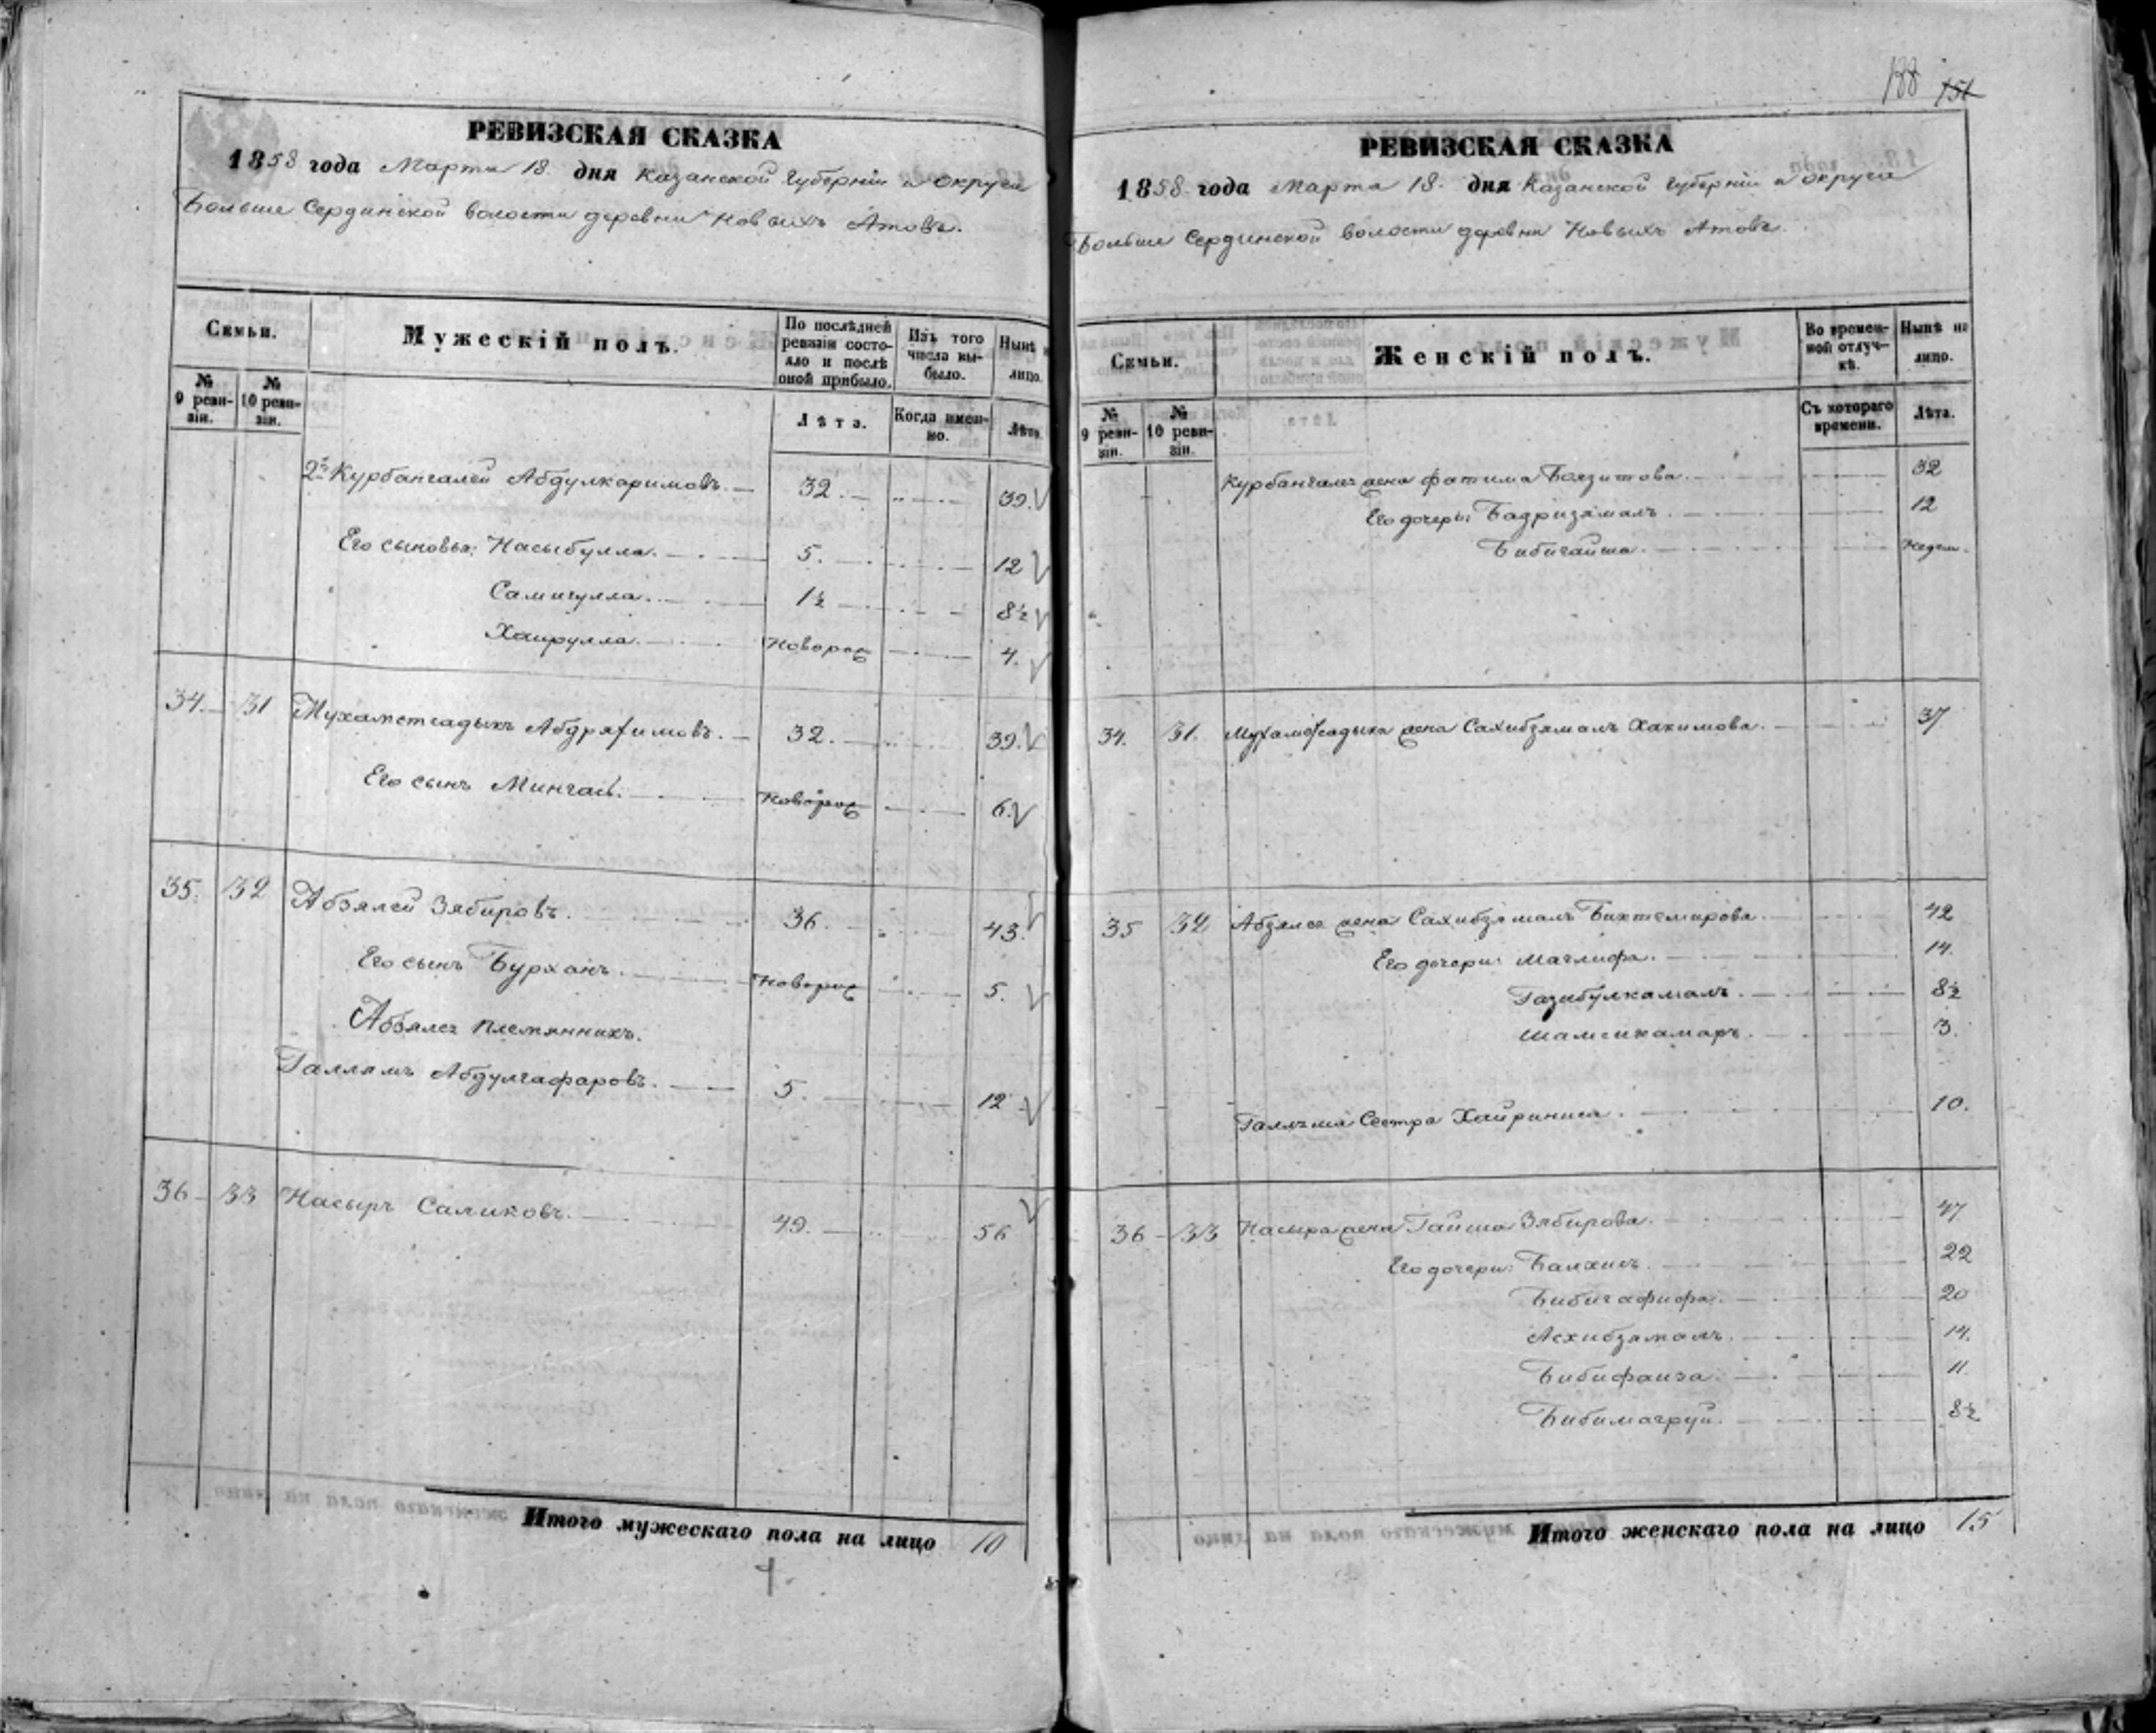 РЕВИЗСКАЯ СКАЗКА
1858 года Марта 18. дня Казанской губернiи и округа
Больше Сердинской волости деревни Новыхъ Атовъ.
Семьи.
Мужескiй полъ.
По послѣдней ревизiи состояло и послѣ оной прибыло.
Изъ того числа выбыло.
Нынѣ н лицо.
№ 9 ревизiи.
№ 10 ревизiи.
Лѣта.
Когда именно.
Лѣта
2й Курбангалей Абдулкаримовъ. 32. 39.
Его сыновья: Насыбулла. 5. 12
Самигулла. 1½ 8½
Хайрулла. Новорож 4.
34. 31 Мухаметсадыкъ Абдряхимовъ. 32. 39.
Его сынъ Мингай. Новорож 6.
35. 32 Абзялей Зябировъ. 36. 43.
Его сынъ Бурханъ. Новорож 5.
Абзялея племянникъ.
Галлямъ Абдулгафаровъ. 5. 12
36 33 Насыръ Саликовъ. 49. 56
Итого мужескаго пола на лицо 10
138 151
РЕВИЗСКАЯ СКАЗКА
1858 года Марта 18. дня Казанской губернiи и округа
Больше Сердинской волости деревни Новыхъ Атовъ.
Семьи.
Женскiй полъ.
Во временной отлучкѣ.
Нынѣ на лицо.
№ 9 ревизiи.
№ 10 ревизiи.
Съ котораго времени.
Лѣта.
Курбангалея жена Фатима Баязитова. 32
Его дочери: Бадризямалъ. 12
Бибигайша. Недели.
34. 31. Мухаметсадыка жена Сахибзямалъ Хакимова. 37
35 32 Абзялея жена Сахибзямалъ Биктемирова. 42
Его дочери: Маглифа. 14.
Газибулкамалъ. 8½
Шамсикамаръ. 3.
Галляма Сестра Хайриниса. 10.
36 33 Насыра жена Гайша Зябирова. 47
Его дочери: Балхисъ. 22
Бибигафифа. 20
Асхибзямалъ. 14.
Бибифаиза. 11.
Бибимагруй. 8½
Итого женскаго пола на лицо 15